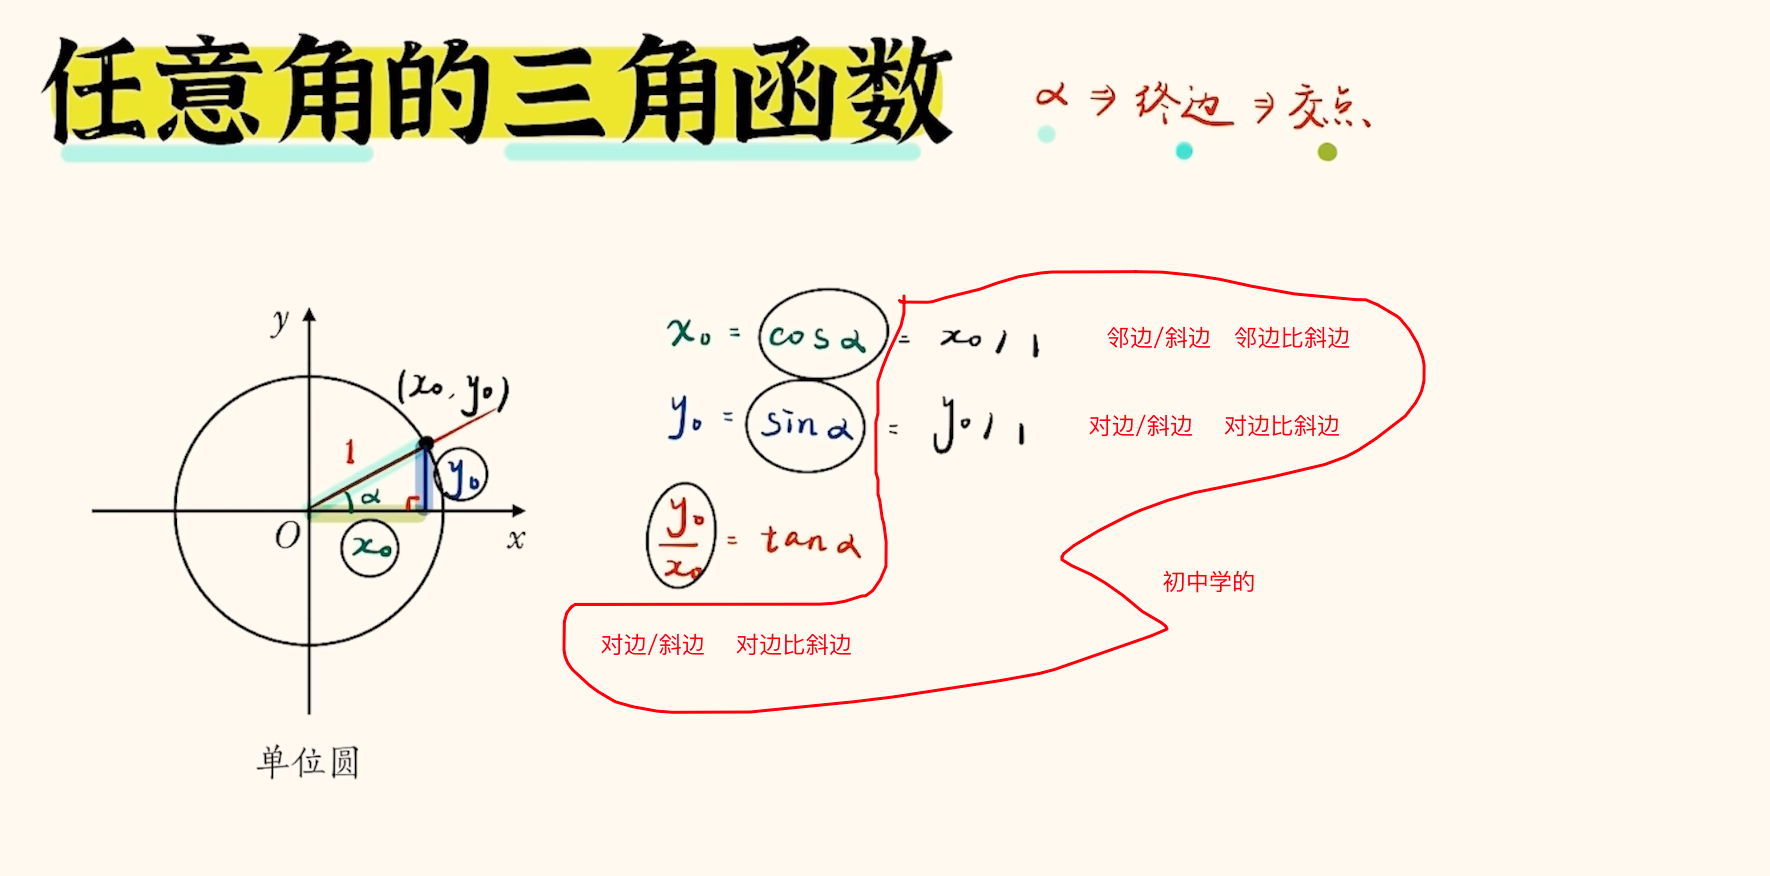 任意角的三角函数
α ⇒ 终边 ⇒ 交点
y
(x₀, y₀)
1
α
y₀
O
x₀
x
单位圆
x₀ = cos α = x₀ / 1 邻边/斜边 邻边比斜边
y₀ = sin α = y₀ / 1 对边/斜边 对边比斜边
y₀/x₀ = tan α
初中学的
对边/斜边 对边比斜边